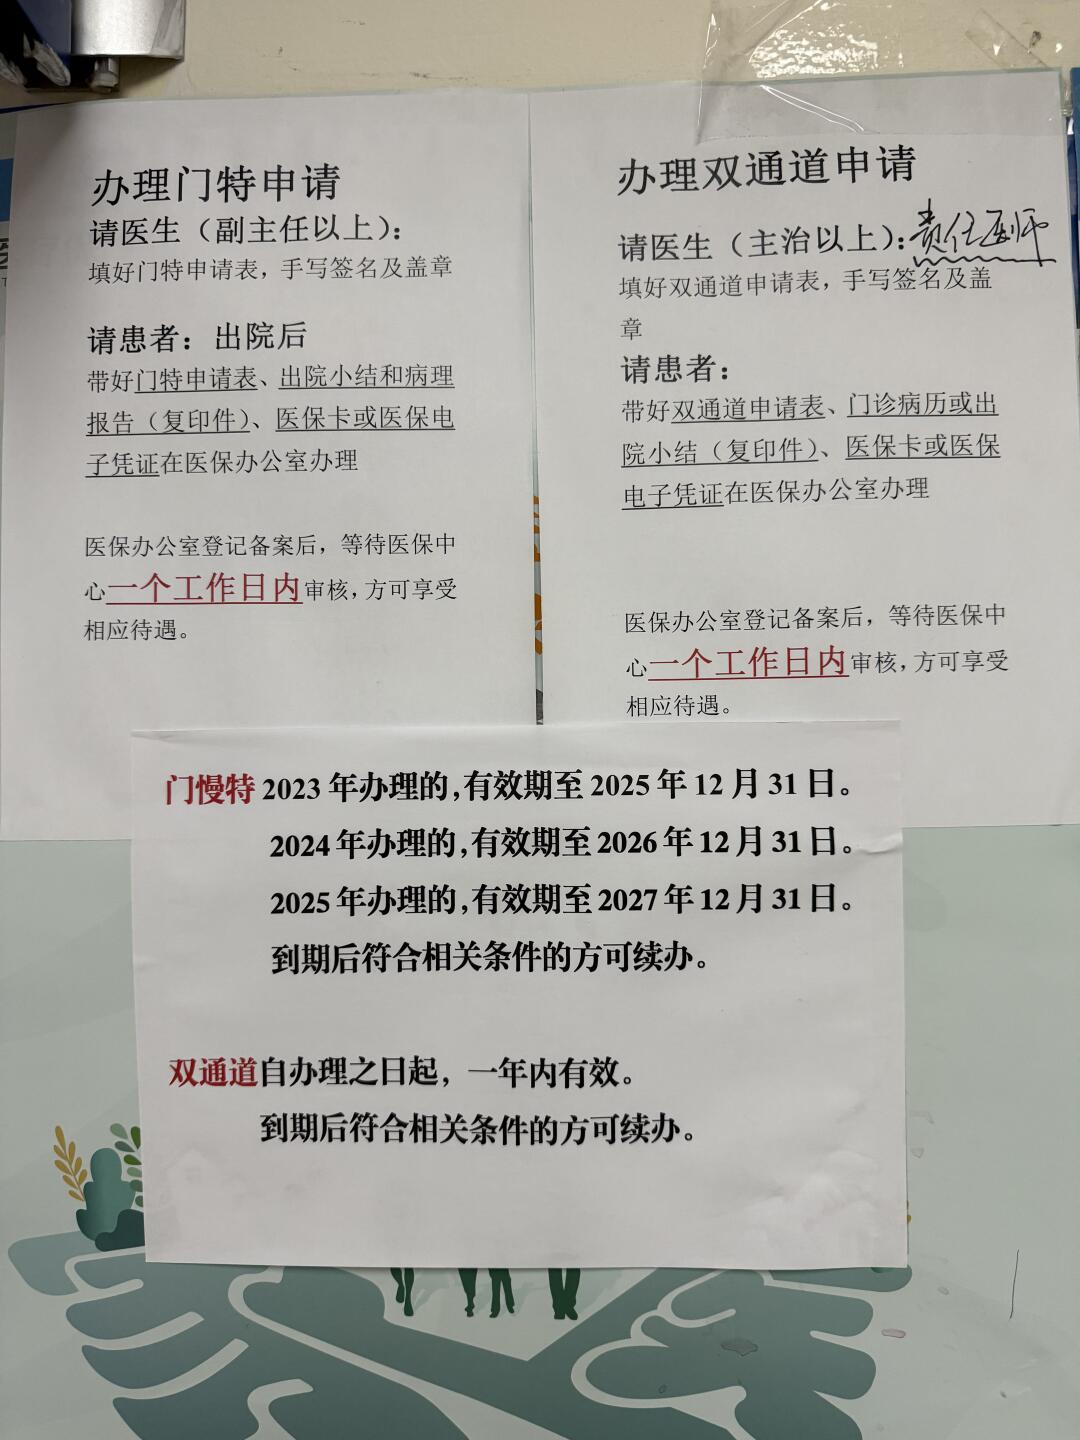 办理门特申请
请医生（副主任以上）：
填好门特申请表，手写签名及盖章
请患者：出院后
带好门特申请表、出院小结和病理
报告（复印件）、医保卡或医保电
子凭证在医保办公室办理
医保办公室登记备案后，等待医保中
心一个工作日内审核，方可享受
相应待遇。
办理双通道申请
请医生（主治以上）：责任医师
填好双通道申请表，手写签名及盖
章
请患者：
带好双通道申请表、门诊病历或出
院小结（复印件）、医保卡或医保
电子凭证在医保办公室办理
医保办公室登记备案后，等待医保中
心一个工作日内审核，方可享受
相应待遇。
门慢特2023年办理的，有效期至2025年12月31日。
2024年办理的，有效期至2026年12月31日。
2025年办理的，有效期至2027年12月31日。
到期后符合相关条件的方可续办。
双通道自办理之日起，一年内有效。
到期后符合相关条件的方可续办。